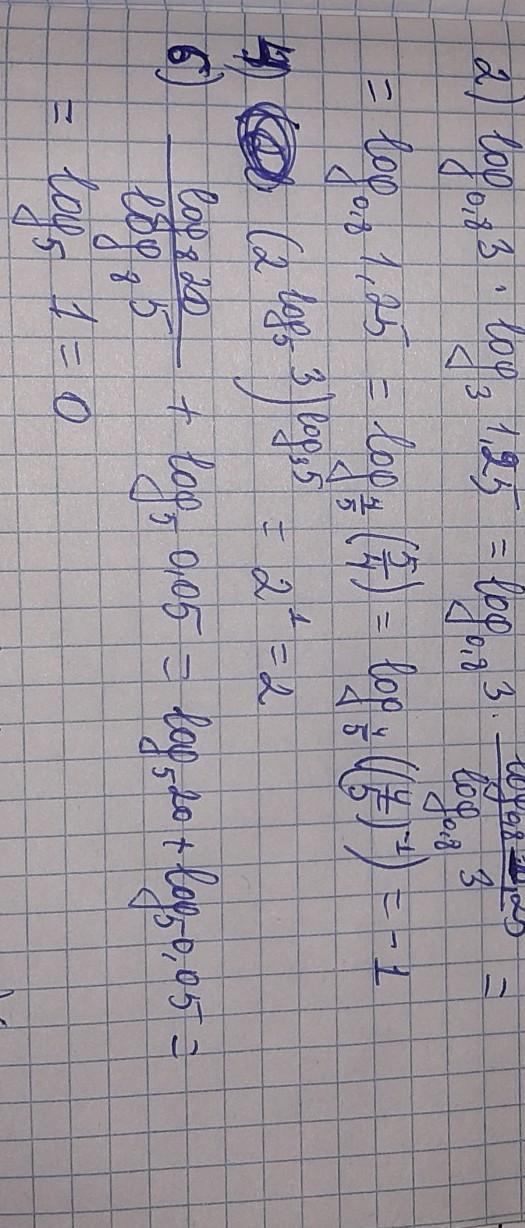 2) log_{0,8} 3 · log_3 1,25 = log_{0,8} 3 · \frac{log_{0,8} 1,25}{log_{0,8} 3} =
= log_{0,8} 1,25 = log_{\frac{4}{5}} (\frac{5}{4}) = log_{\frac{4}{5}} ((\frac{4}{5})^{-1}) = -1
4) (2^{log_5 3})^{log_3 5} = 2^1 = 2
6) \frac{log_8 20}{log_8 5} + log_5 0,05 = log_5 20 + log_5 0,05 =
= log_5 1 = 0